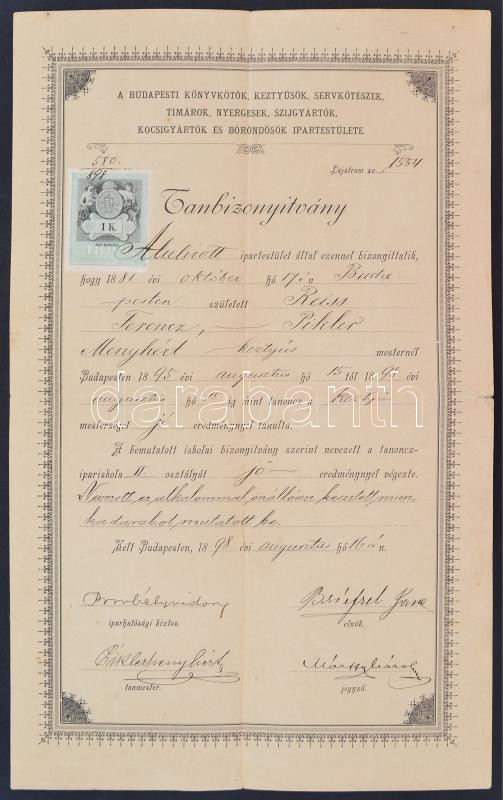 A BUDAPESTI KÖNYVKÖTŐK, KEZTYÜSÖK, SERVKÖTÉSZEK,
TIMÁROK, NYERGESEK, SZIJGYÁRTÓK,
KOCSIGYÁRTÓK ÉS BŐRÖNDÖSÖK IPARTESTÜLETE.
580.
898
Lajstrom sz. 1554
1 K.
Tanbizonyitvány
Alulirott ipartestület által ezennel bizonyittatik,
hogy 1881 évi október hó 17én Buda-
pesten született Reiss
Ferencz, Pikler
Menyhért keztyüs mesternél
Budapesten 1895 évi augusztus hó 15 től 1898 évi
augusztus hó 15 ig mint tanoncz a keztyüs
mesterséget jó eredménynyel tanulta.
A bemutatott iskolai bizonyitvány szerint nevezett a tanoncz-
ipariskola II osztályát jó eredménynyel végezte.
Nevezett ez alkalommal önállóan készített mun-
kadarabot mutatott be.
Kelt Budapesten, 1898 évi augusztus hó 16án.
iparhatósági biztos.
elnök.
Pikler Menyhért
tanmester.
jegyző.
darabanth